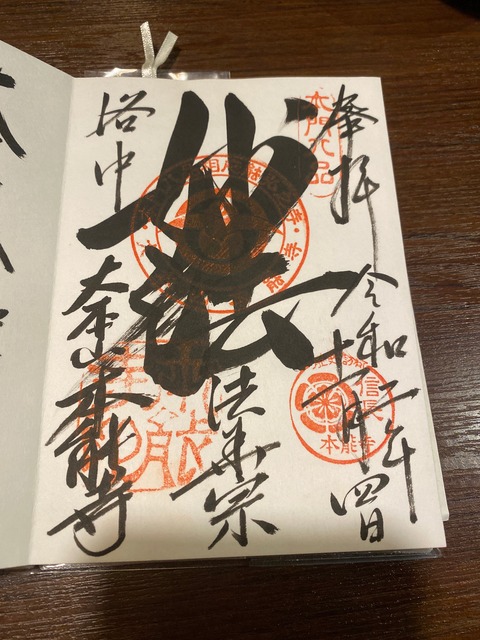 奉拝
令和二年
十一月四日
妙法
法華宗
塔中
大本山本能寺
信長
本能寺
本門八品